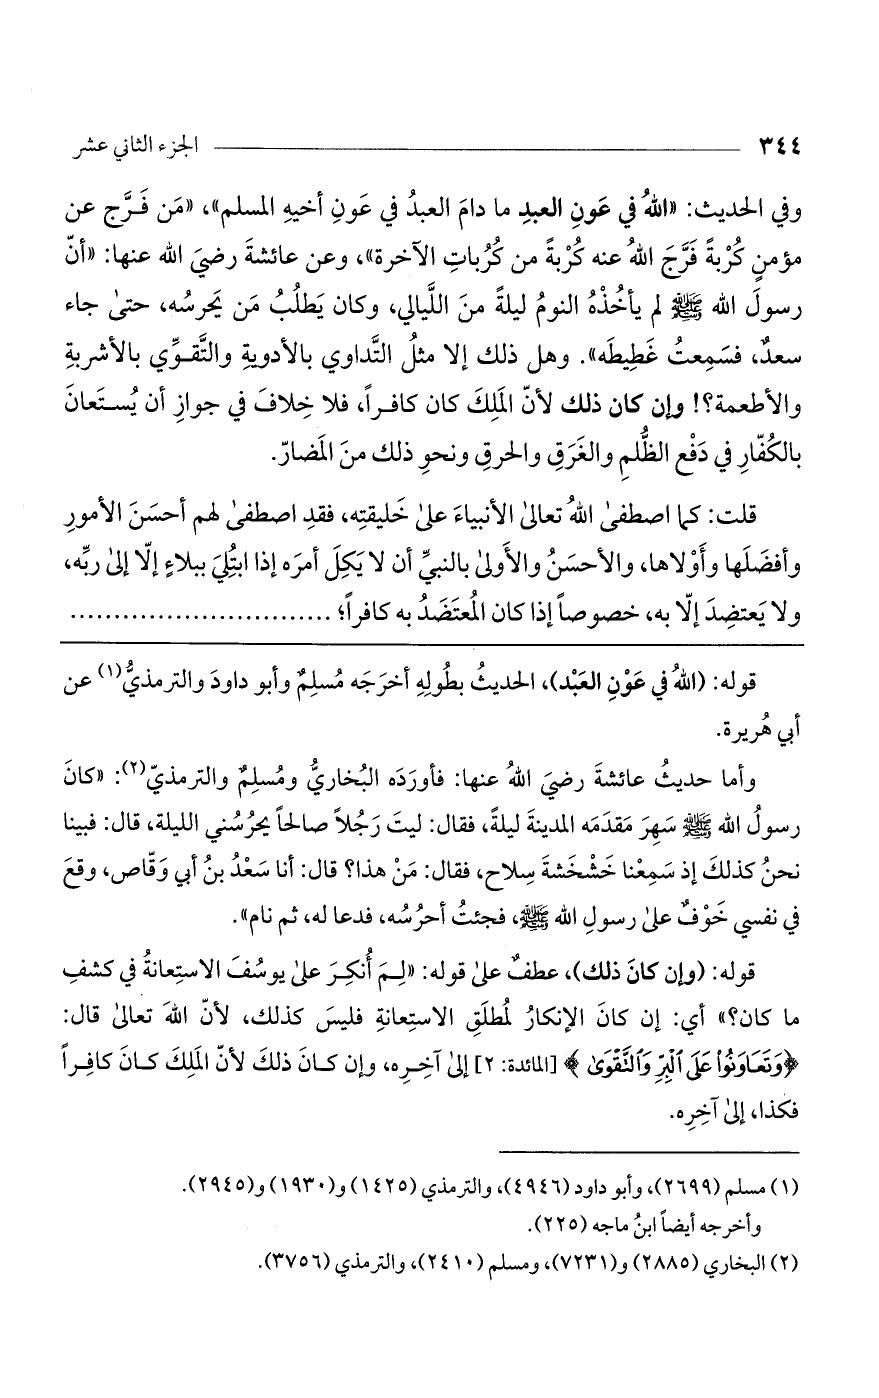 ٣٤٤ الجزء الثاني عشر
وفي الحديث: «اللهُ في عَونِ العبدِ ما دامَ العبدُ في عَونِ أخيهِ المسلم»، «مَن فَرَّج عن
مؤمنٍ كُرْبةً فَرَّجَ اللهُ عنه كُرْبةً من كُرُباتِ الآخرة»، وعن عائشةَ رضيَ الله عنها: «أنّ
رسولَ الله ﷺ لم يأخُذْهُ النومُ ليلةً منَ اللَّيالي، وكان يَطلُبُ مَن يَحرسُه، حتىٰ جاء
سعدٌ، فسَمِعتُ غَطِيطَه». وهل ذلك إلا مثلُ التَّداوي بالأدويةِ والتَّقوِّي بالأشربةِ
والأطعمة؟! وإن كان ذلك لأنّ المَلِكَ كان كافراً، فلا خِلافَ في جوازِ أن يُستَعانَ
بالكُفّارِ في دَفْعِ الظُّلمِ والغَرَقِ والحرقِ ونحوِ ذلك منَ المَضارّ.
قلت: كما اصطفىٰ اللهُ تعالىٰ الأنبياءَ علىٰ خَليقتِه، فقدِ اصطفىٰ لهم أحسَنَ الأمورِ
وأفضَلَها وأَوْلاها، والأحسَنُ والأَولىٰ بالنبيِّ أن لا يَكِلَ أمرَه إذا ابتُلِيَ ببلاءٍ إلّا إلىٰ ربِّه،
ولا يَعتضِدَ إلّا به، خصوصاً إذا كان المُعتَضَدُ به كافراً؛ ..............................
قوله: (اللهُ في عَوْنِ العَبْد)، الحديثُ بطُولِهِ أخرَجَه مُسلِمٌ وأبو داودَ والترمذيُّ(١) عن
أبي هُريرة.
وأما حديثُ عائشةَ رضيَ اللهُ عنها: فأورَدَه البُخاريُّ ومُسلِمٌ والترمذيّ(٢): «كانَ
رسولُ الله ﷺ سَهِرَ مَقدَمَه المدينةَ ليلةً، فقال: ليتَ رَجُلاً صالحاً يحرُسُني الليلة، قال: فبينا
نحنُ كذلكَ إذ سَمِعْنا خَشْخَشةَ سِلاح، فقال: مَنْ هذا؟ قال: أنا سَعْدُ بنُ أبي وَقّاص، وقعَ
في نفسي خَوْفٌ علىٰ رسولِ الله ﷺ، فجئتُ أحرُسُه، فدعا له، ثم نام».
قوله: (وإن كانَ ذلك)، عطفٌ علىٰ قوله: «لِمَ أُنكِرَ علىٰ يوسُفَ الاستِعانةُ في كشفِ
ما كان؟» أي: إن كانَ الإنكارُ لمُطلَقِ الاستِعانةِ فليسَ كذلك، لأنّ اللهَ تعالىٰ قال:
﴿وَتَعَاوَنُوا۟ عَلَى ٱلْبِرِّ وَٱلتَّقْوَىٰ﴾ [المائدة: ٢] إلىٰ آخِرِه، وإن كانَ ذلكَ لأنّ المَلِكَ كانَ كافِراً
فكذا، إلىٰ آخِرِه.
(١) مسلم (٢٦٩٩)، وأبو داود (٤٩٤٦)، والترمذي (١٤٢٥) و(١٩٣٠) و(٢٩٤٥).
وأخرجه أيضاً ابنُ ماجه (٢٢٥).
(٢) البخاري (٢٨٨٥) و(٧٢٣١)، ومسلم (٢٤١٠)، والترمذي (٣٧٥٦).